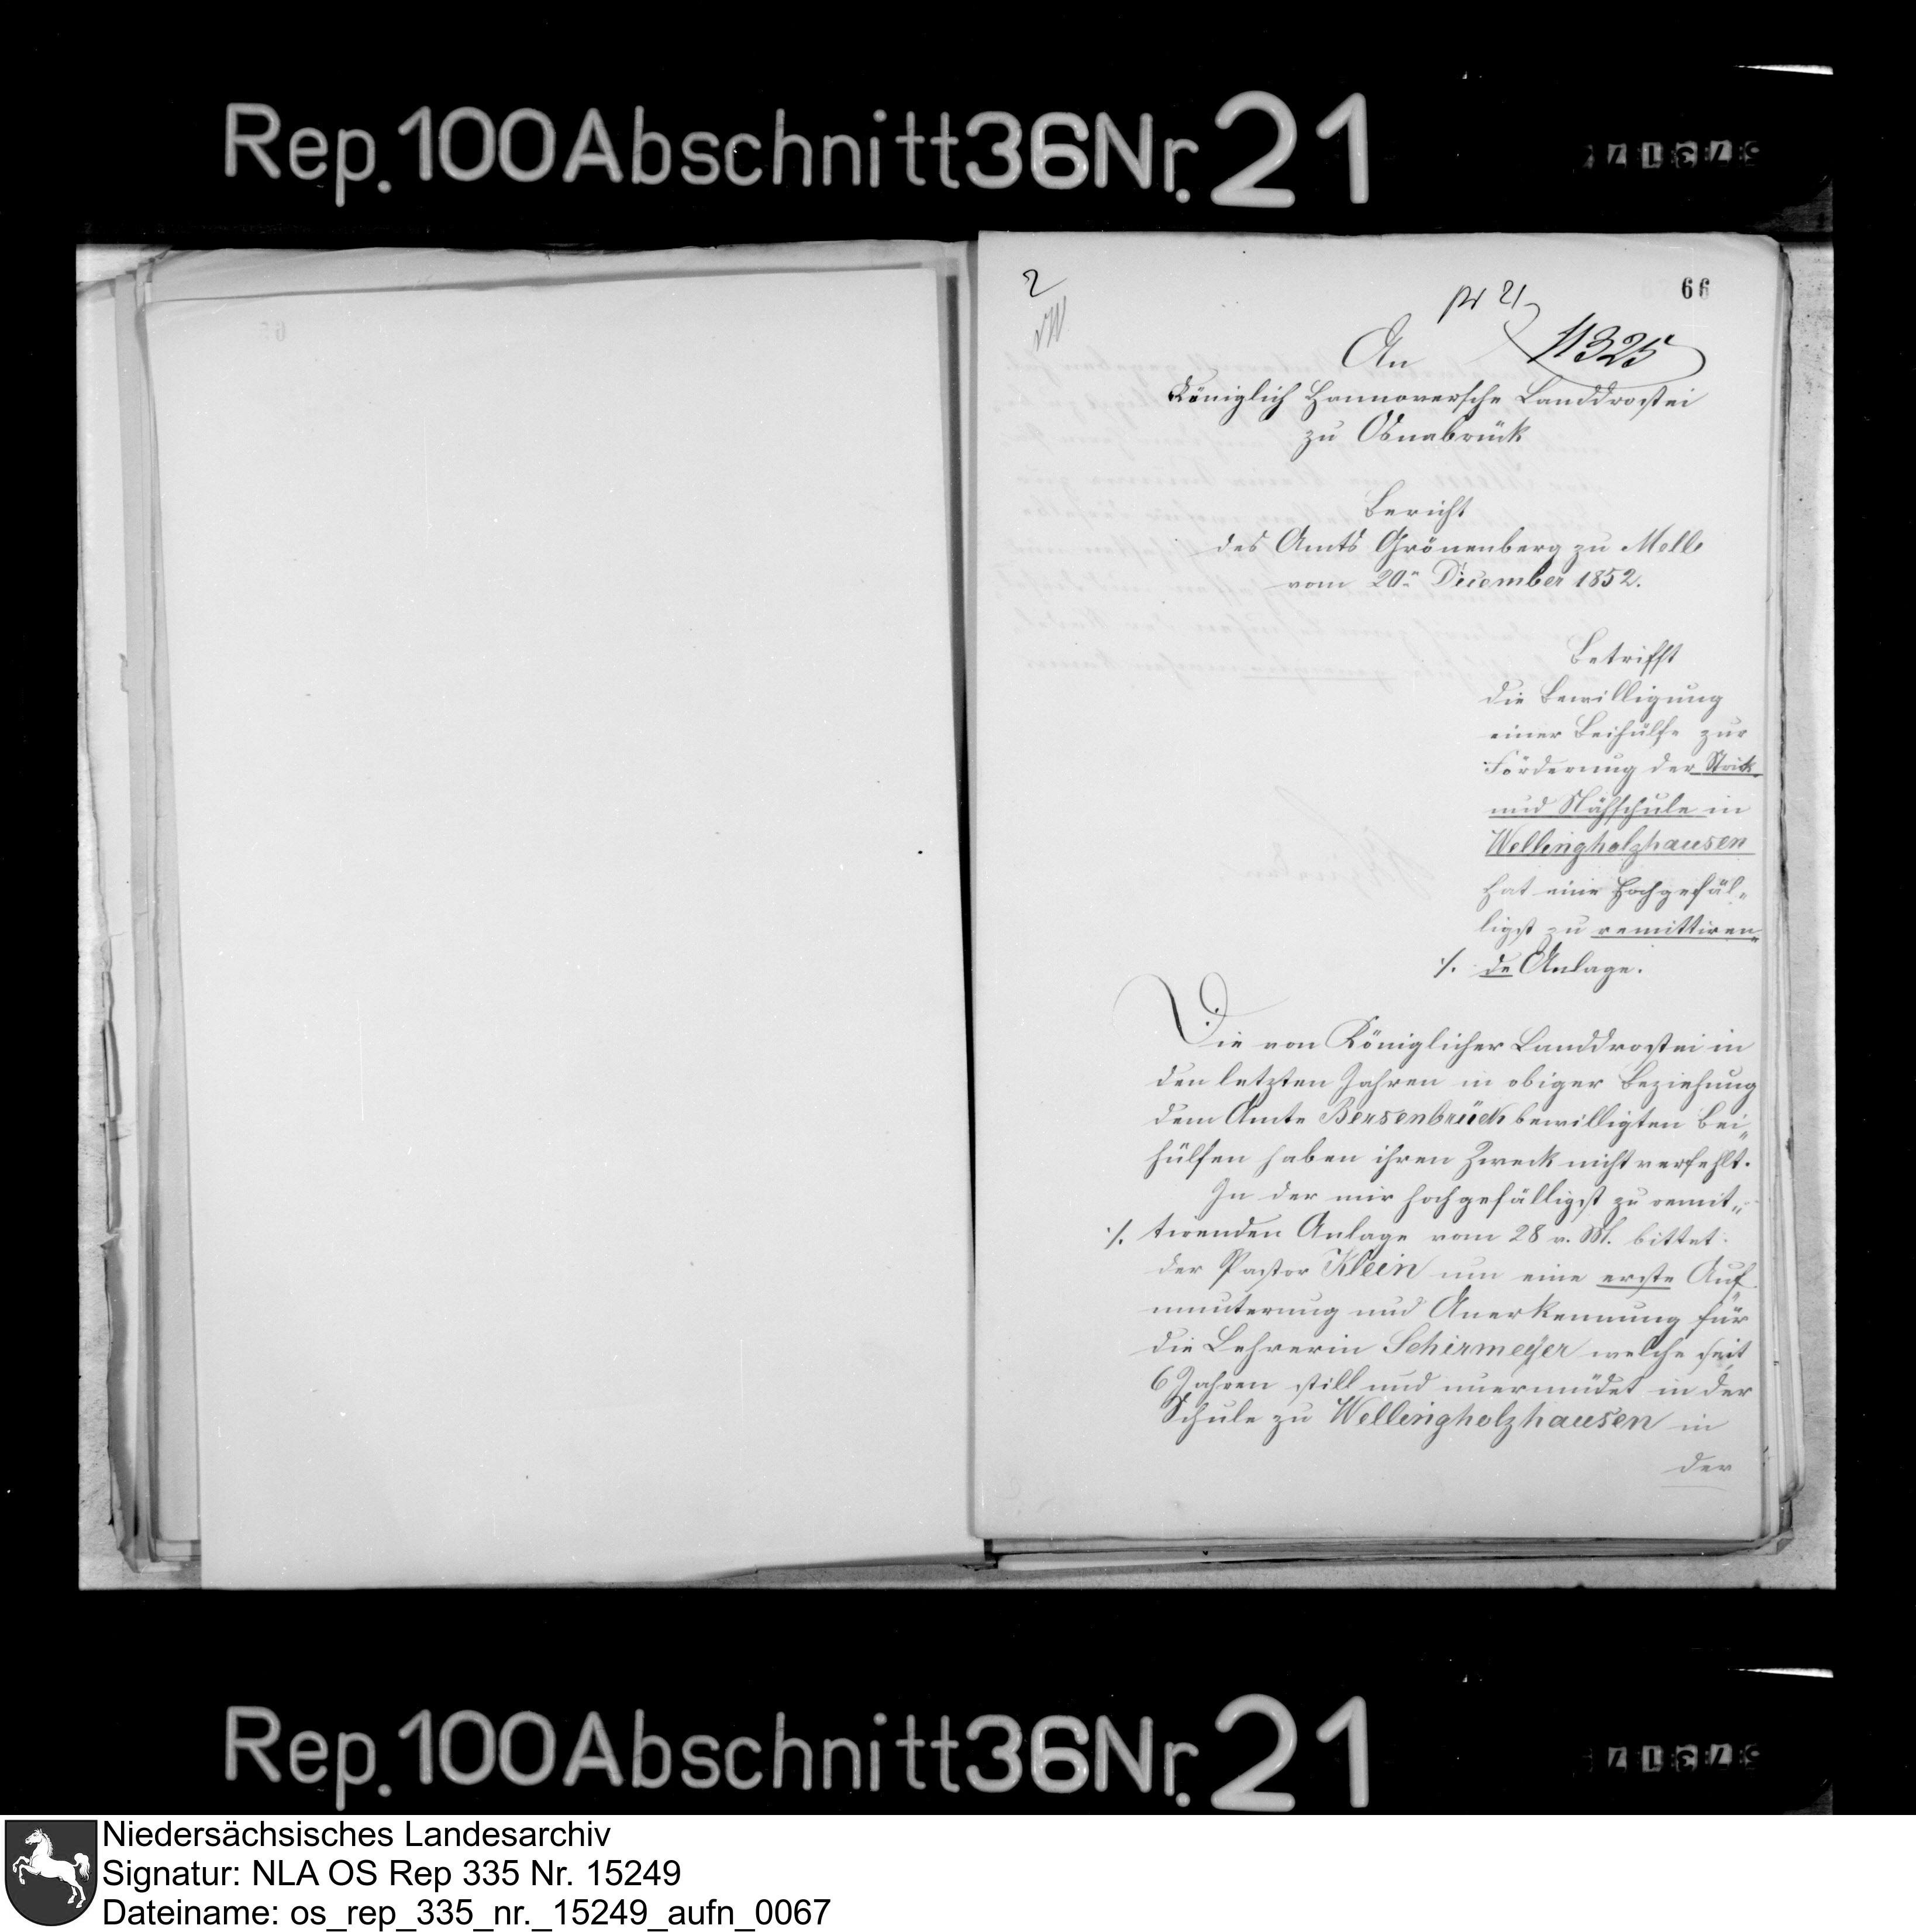 Rep.100Abschnitt36Nr.21
2
66
pr 21
11325
An
Königlich Hannoversche Landdrostei
zu Osnabrück
Bericht
des Amts Grönenberg zu Melle
vom 20n December 1852.
Betrifft
die Bewilligung
einer Beihülfe zur
Förderung der Strick-
und Nähschule in
Wellingholzhausen
hat eine hochgefäl-
ligst zu remittiren-
./. de Anlage.
Die von Königlicher Landdrostei in
den letzten Jahren in obiger Beziehung
dem Amte Bersenbrück bewilligten Bei-
hülfen haben ihren Zweck nicht verfehlt.
In der mir hochgefälligst zu remit-
./. tirenden Anlage vom 28 v. M. bittet
der Pastor Klein um eine erste Auf-
munterung und Anerkennung für
die Lehrerin Schirmeyer welche seit
6 Jahren still und unermüdet in der
Schule zu Wellingholzhausen in
der
Rep.100Abschnitt36Nr.21
Niedersächsisches Landesarchiv
Signatur: NLA OS Rep 335 Nr. 15249
Dateiname: os_rep_335_nr._15249_aufn_0067